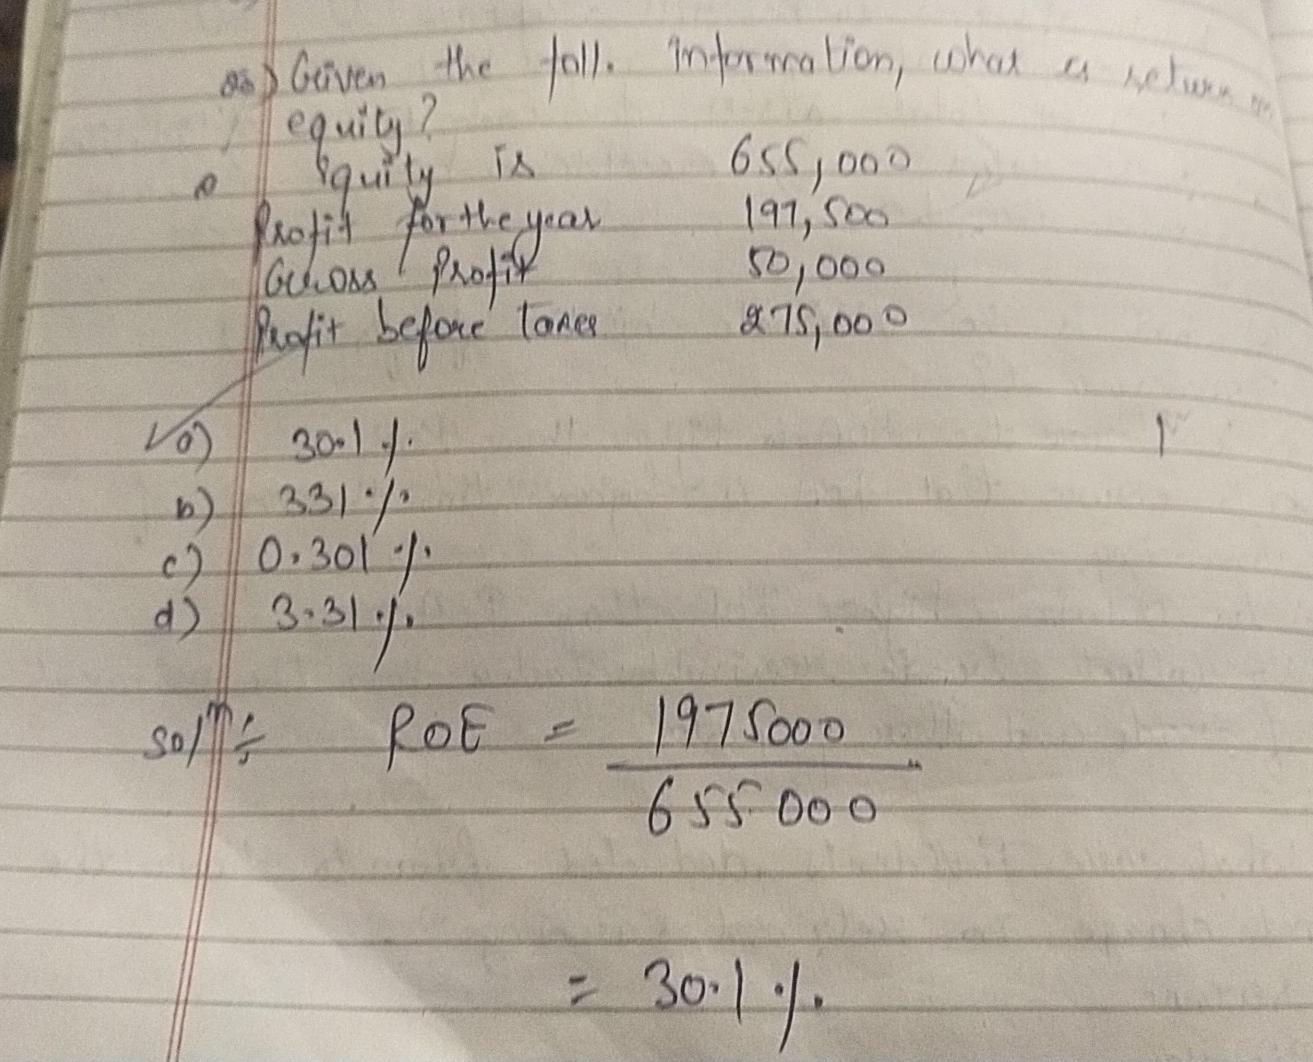 Given the foll. information, what is return on
equity?
Equity is 655,000
Profit for the year 197,500
Gross Profit 50,000
Profit before Taxes 275,000
a) 30.1 %
b) 331 %
c) 0.301 %
d) 3.31 %
solⁿ ÷ ROE = 1975000
655000
= 30.1 %